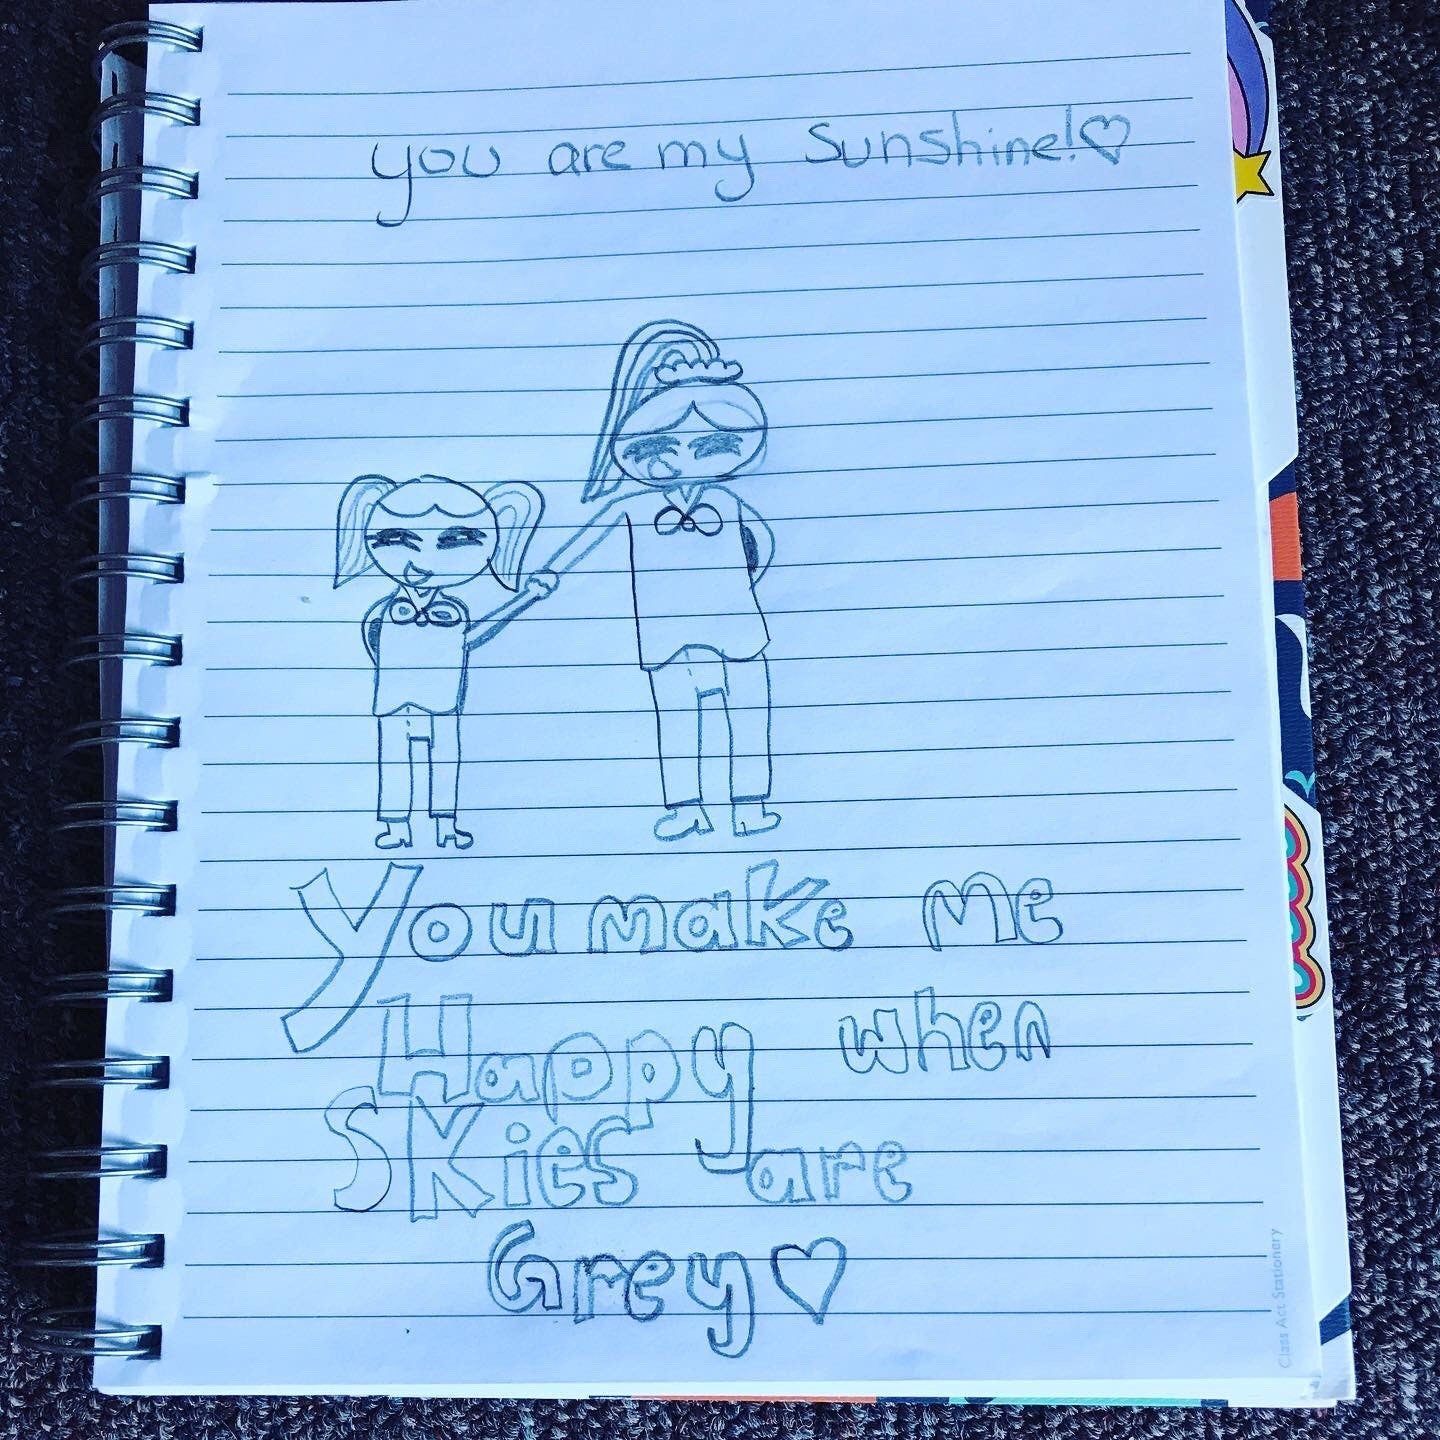 you are my Sunshine!♡
You make me
Happy when
SKies are
Grey♡
Class Act Stationery